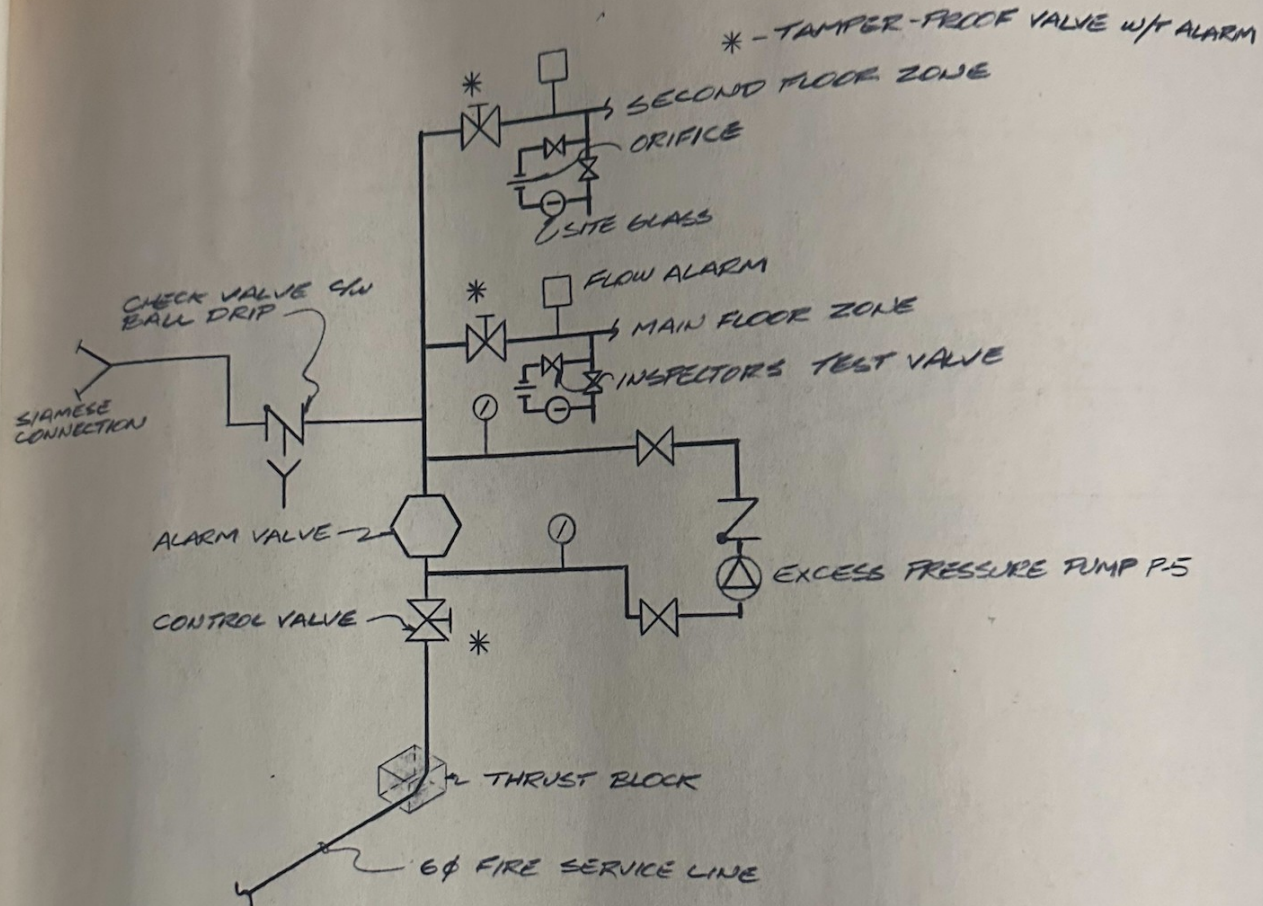 * - TAMPER-PROOF VALVE W/T ALARM
*
SECOND FLOOR ZONE
ORIFICE
SITE GLASS
FLOW ALARM
*
CHECK VALVE C/W
BALL DRIP
MAIN FLOOR ZONE
INSPECTORS TEST VALVE
SIAMESE
CONNECTION
ALARM VALVE
EXCESS PRESSURE PUMP P-5
CONTROL VALVE
*
THRUST BLOCK
6φ FIRE SERVICE LINE